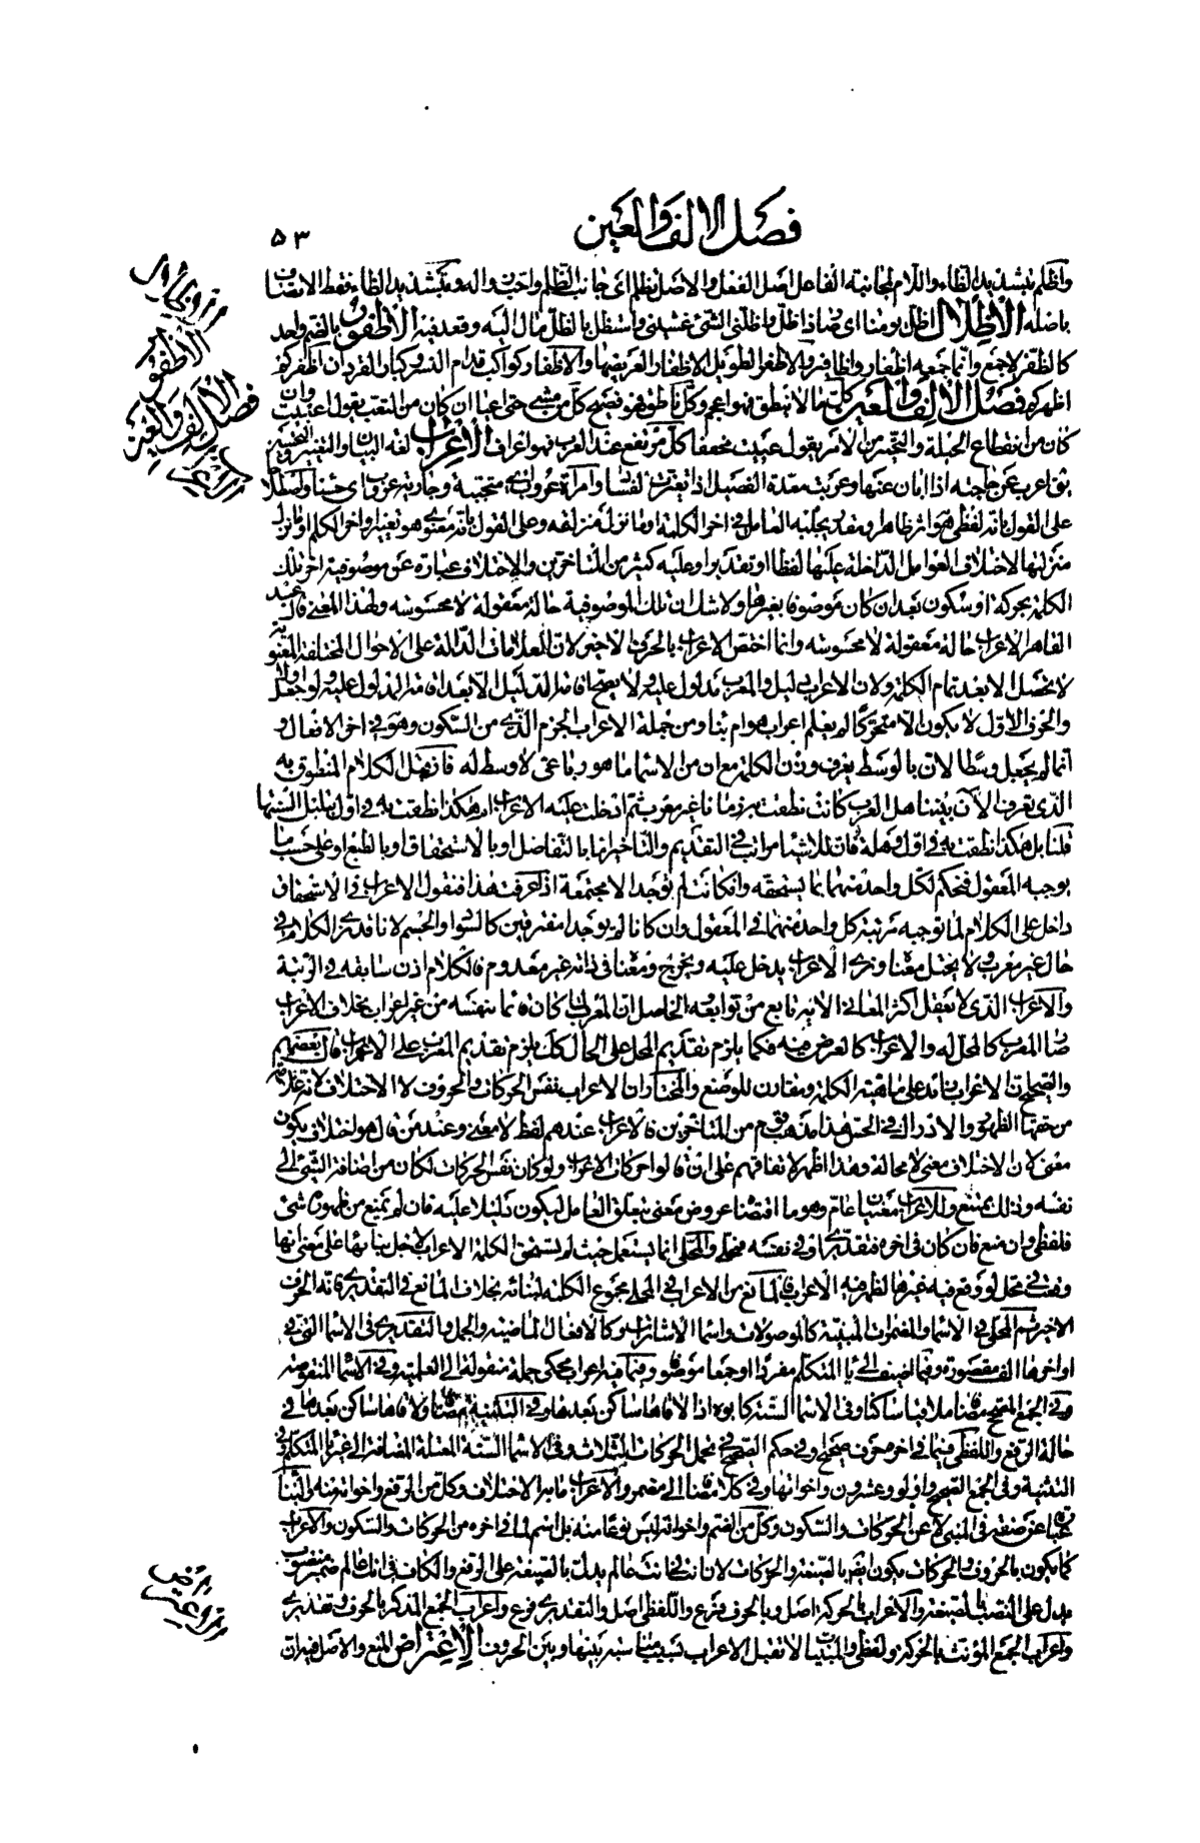 فصل الالف والعين
٥٣
واظلم بتشديد الظاء واللام
باصله الاظلال اظل يومنا اى صار ذا ظل واظلنى الشئ غشينى واستظل بالظل مال اليه وقعد فيه الاظفور بالضم واحد
كالظفر لا جمع وانما جمعه اظفار واظافير والاظفر الطويل الاظفار العريضها والاظفار كواكب قدام النسر وكبار القردان
فصل الالف والعين كل ما لا ينطق فهو اعجم وكل ناطق فهو فصيح كل من مشى حتى اعيا ان كان من التعب يقول اعييت وان
كان من انقطاع الحيلة والتحير من الامر يقول عييت مخففا كل مرتفع عند العرب فهو اعراف الاعراب لغة البيان والتغيير والتحسين
يق اعرب عن حاجته اذا ابان عنها وعربت معدة الفصيل اذا تغيرت لفساد وامرأة عروب اى متحببة وجارية عروب اى حسناء واصطلاحا
على القول بانه لفظى هو اثر ظاهر او مقدر يجلبه العامل فى اخر الكلمة او ما نزل منزلته وعلى القول بانه معنوى هو تغيير اواخر الكلم او ما نزل
منزلتها لاختلاف العوامل الداخلة عليها لفظا او تقديرا وعليه كثير من المتاخرين والاختلاف عبارة عن موصوفية اخر تلك
الكلمة بحركة او سكون بعد ان كان موصوفا بغيرها ولا شك ان تلك الموصوفية حالة معقولة لا محسوسة ولهذا المعنى قال عبد
القاهر الاعراب حالة معقولة لا محسوسة وانما اختص الاعراب بالحرف الاخير لان العلامات الدالة على الاحوال المختلفة المعنوية
لا تحصل الا بعد تمام الكلمة ولان الاعراب دليل والمعرب مدلول عليه ولا يصح اقامة الدليل الا بعد اقامة المدلول عليه ولو جعل اولا
والحرف الاول لا يكون الا متحركا لم يعلم اعراب هو ام بناء ومن جملة الاعراب الجزم الذى من السكون وهو فى اخر الافعال و
انما لم يجعل وسطا لان بالوسط يعرف وزن الكلمة مع ان من الاسماء ما هو رباعى لا وسط له فان قيل الكلام المنطوق به
الذى نعرف الآن بيننا هل العرب كانت نطقت به زمانا غير معرب ثم ادخلت عليه الاعراب ام هكذا نطقت به فى اول تبلبل السنتها
قلنا بل هكذا نطقت به فى اول وهلة فان للاشياء مراتب فى التقديم والتاخير اما بالتفاضل او بالاستحقاق او بالطبع او على حسب ما
يوجبه المعقول فنحكم لكل واحد منهما بما يستحقه وان كانت لم توجد الا مجتمعة اذا عرفت هذا فنقول الاعراب فى الاستحقاق
داخل على الكلام لما توجبه مرتبة كل واحد منهما فى المعقول وان كانا لم يوجدا مفترقين كالسواد والجسم لانا قد نرى الكلام فى
حال غير معرب ولا يختل معناه ونرى الاعراب يدخل عليه ويخرج ومعناه فى ذاته غير معدوم فالكلام اذن سابقه فى الرتبة
والاعراب الذى لا يعقل اكثر المعانى الا به تابع من توابعه الحاصل ان المعرب كان قائما بنفسه من غير اعراب بخلاف الاعراب
صار المعرب كالمحل له والاعراب كالعرض فيه فكما يلزم تقديم المحل على الحال كك يلزم تقديم المعرب على الاعراب قال بعضهم
والصحيح ان الاعراب زائد على ماهية الكلمة ومقارن للوضع والمختار ان الاعراب نفس الحركات والحروف لا الاختلاف لانه علامة
من حقها الظهور والادراك فى الحس هذا مذهب قوم من المتاخرين فالاعراب عندهم لفظ لا معنى وعند من قال هو اختلاف يكون
معنى لان الاختلاف معنى لا محالة وهذا اظهر لاتفاقهم على ان قالوا حركات الاعراب ولو كان نفس الحركات لكان من اضافة الشئ الى
نفسه وذلك ممتنع وللاعراب معنيان عام وهو ما اقتضاه عروض معنى بتعلق العامل ليكون دليلا عليه فان لم يمنع من ظهوره شئ
فلفظى وان منع فان كان فى اخره فتقديرى او فى نفسه فمحلى والمحلى انما يستعمل حيث لم تستحق الكلمة الاعراب لاجل بنائها على معنى انها
وقعت فى محل لو وقع فيه غيرها لظهر فيه الاعراب فالمانع من الاعراب فى المحلى مجموع الكلمة لبنائه بخلاف المانع فى التقديرى فانه الحرف
الاخير ثم المحلى فى الاسماء والمضمرات المبنية كالموصولات واسماء الاشارات وكالافعال الماضية والجمل والتقديرى فى الاسماء التى فى
اواخرها الف مقصورة وفيما اضيف الى ياء المتكلم مفردا او جمعا موصوفا وفيما فيه اعراب محكى جملة منقولة الى العلمية وفى الاسماء المنقوصة
وفى الجمع المصحح مضافا ملاقيا ساكنا وفى الاسماء الستة كابوه اذا لاقاها ساكن بعدها وفى التثنية مضافا ولاقاها ساكن بعدها فى
حالة الرفع واللفظى فيما فى اخره حرف صحيح او فى حكم الصحيح فى تحمل الحركات الثلاث وفى الاسماء الستة المعتلة المضافة الى غير ياء المتكلم وفى
التثنية وفى الجمع الصحيح واولو وعشرون واخواتها وفى كلا مضافا الى مضمر والاعراب ما به الاختلاف وكل من الرفع واخواته فيه والبناء
عبارة عن صفة فى المبنى لا عن الحركات والسكون وكل من الضم واخواته ليس نوعا منه بل اسم لما فى اخره من الحركات والسكون والاعراب
كما يكون بالحروف والحركات يكون ايضا بالصيغة والحركات لا انت فى انت عالم يدل بالصيغة على الرفع والكاف فى انك عالم ضمير منصوب
يدل على النصب بالصيغة والاعراب بالحركة اصل وبالحرف فرع واللفظى اصل والتقديرى فرع واعراب الجمع المذكر بالحرف وتقديرى
واعراب الجمع المؤنث بالحركة ولفظى والمبنيات لا تقبل الاعراب بسبب مناسبة بينها وبين الحروف الاعتراض المنع والاصل فيه ان
الاظفور
فصل الالف والعين
الاعراب